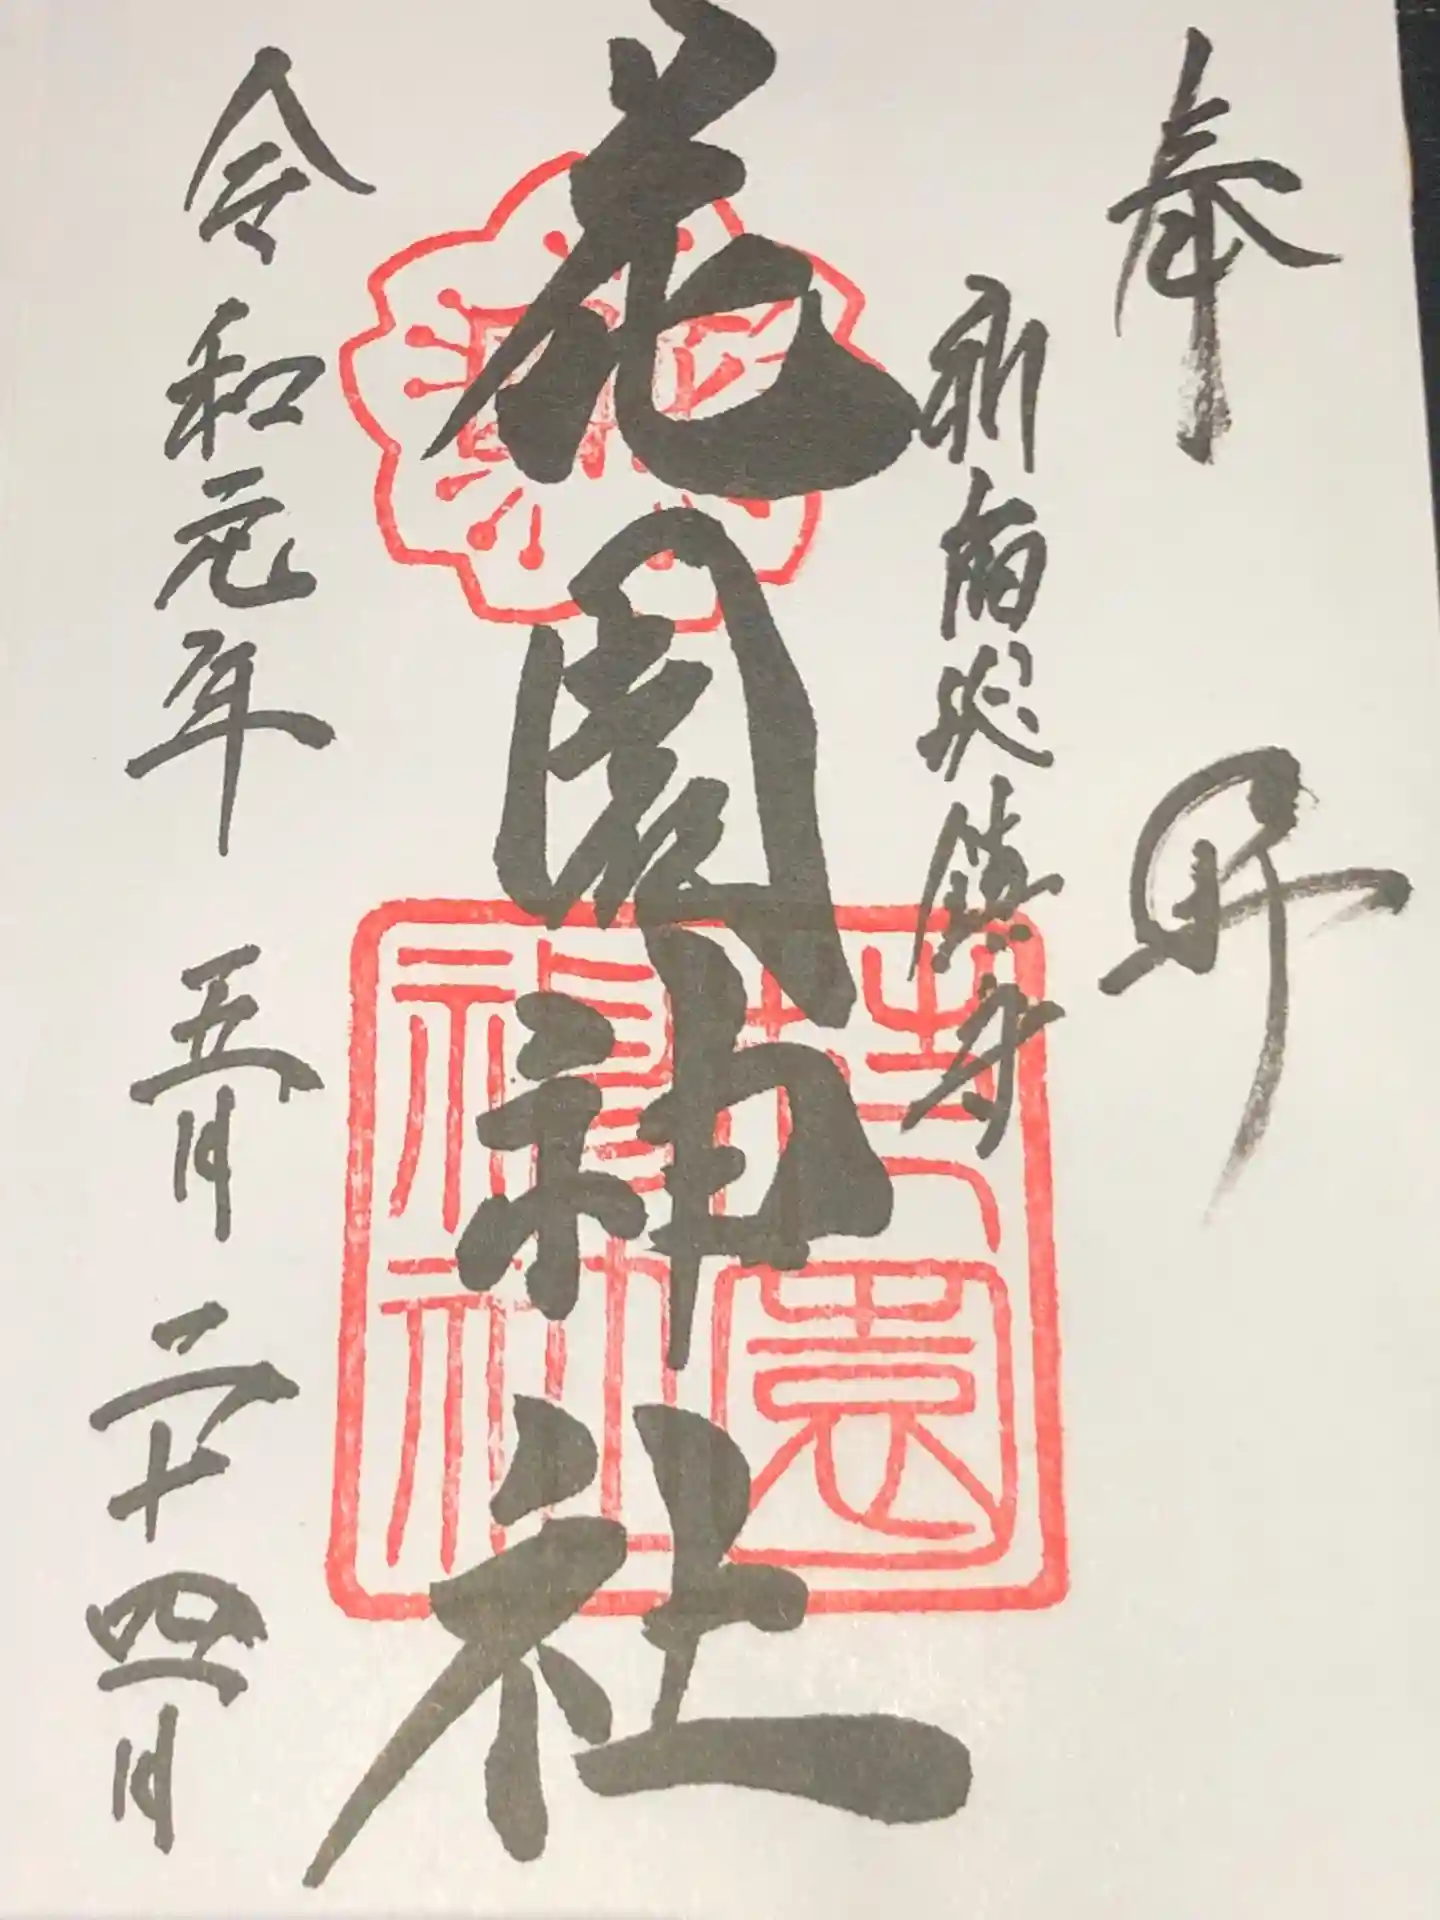 奉拝
新宿総鎮守
花園神社
花園神社
令和元年五月二十四日